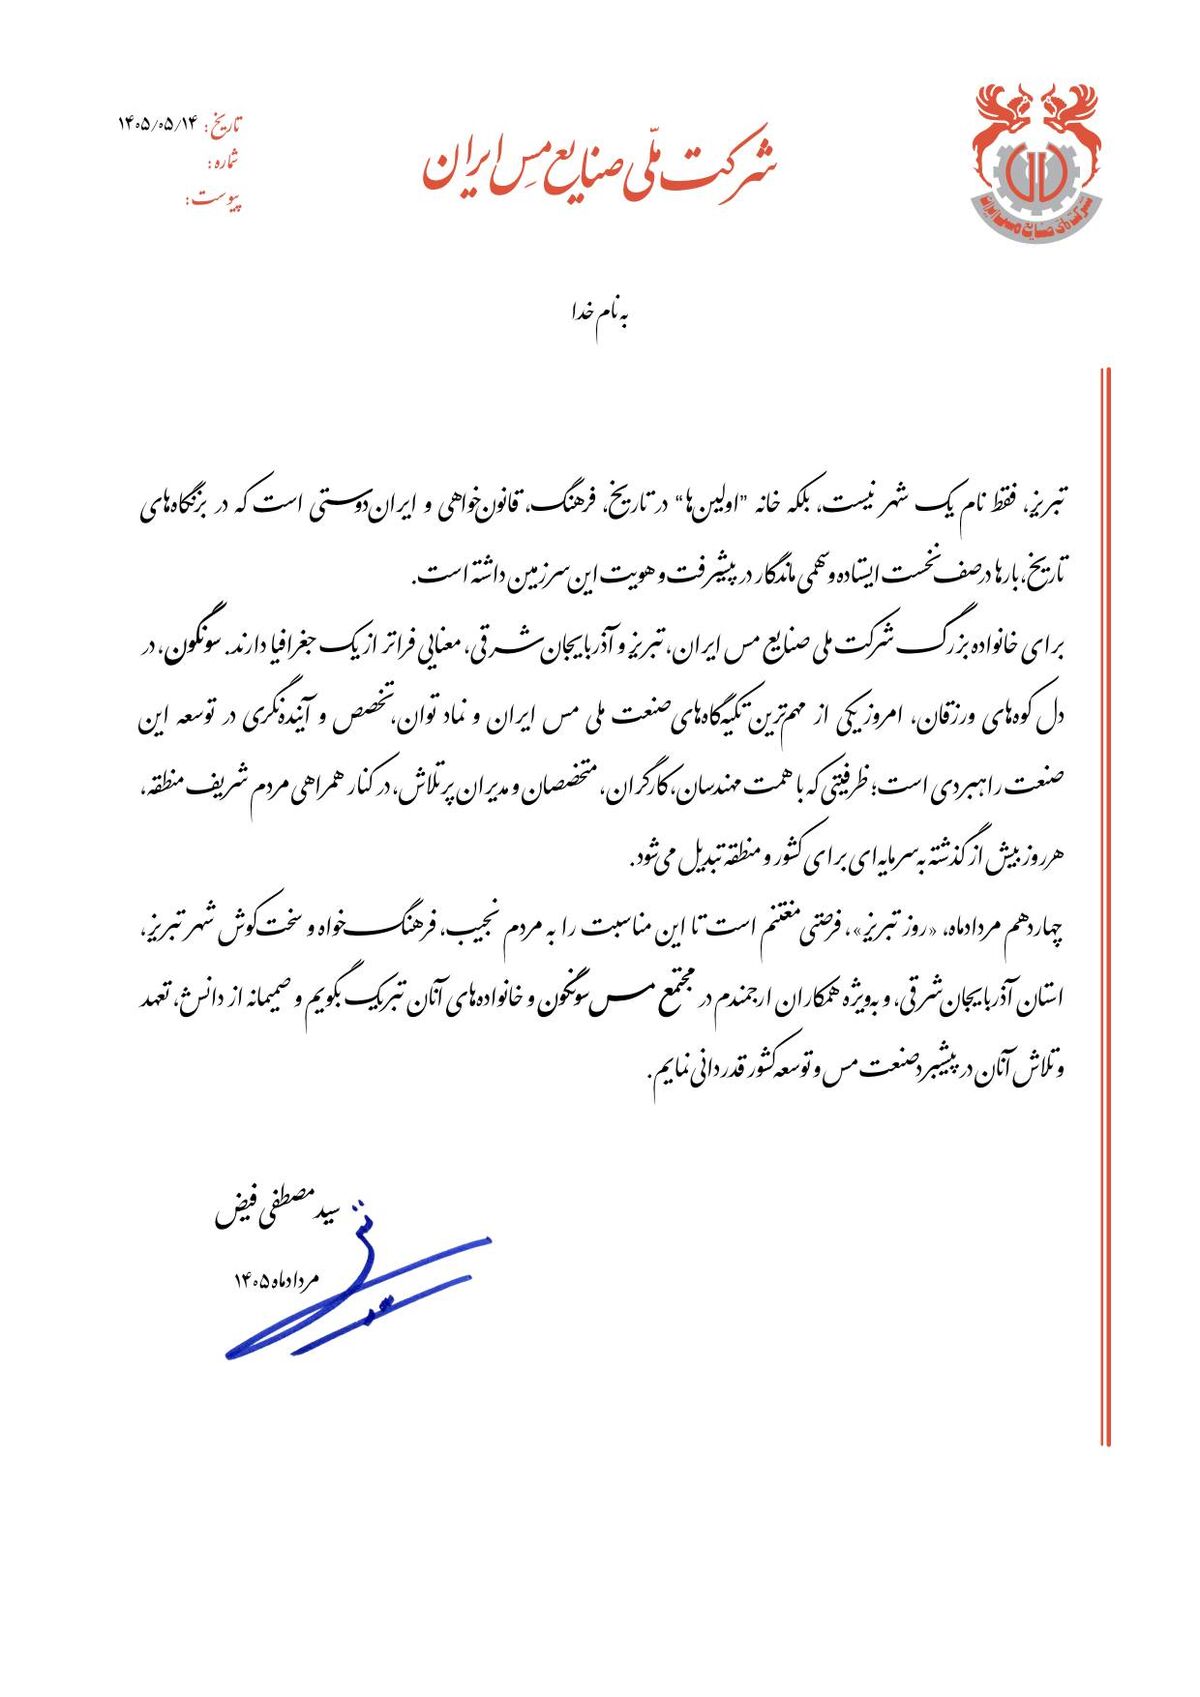 شرکت ملّی صنایع مس ایران
شرکت ملی صنایع مس ایران
تاریخ: ۱۴۰۵/۰۵/۱۴
شماره:
پیوست:
به نام خدا
تبریز، فقط نام یک شهر نیست، بلکه خانه "اولین‌ها" در تاریخ، فرهنگ، قانون‌خواهی و ایران‌دوستی است که در بزنگاه‌های
تاریخ، بارها در صف نخست ایستاده و سهمی ماندگار در پیشرفت و هویت این سرزمین داشته است.
برای خانواده بزرگ شرکت ملی صنایع مس ایران، تبریز و آذربایجان‌شرقی، معنایی فراتر از یک جغرافیا دارند. سونگون، در
دل کوه‌های ورزقان، امروز یکی از مهم‌ترین تکیه‌گاه‌های صنعت ملی مس ایران و نماد توان، تخصص و آینده‌نگری در توسعه این
صنعت راهبردی است؛ ظرفیتی که با همت مهندسان، کارگران، متخصصان و مدیران پرتلاش، در کنار همراهی مردم شریف منطقه،
هر روز بیش از گذشته به سرمایه‌ای برای کشور و منطقه تبدیل می‌شود.
چهاردهم مردادماه، «روز تبریز»، فرصتی مغتنم است تا این مناسبت را به مردم نجیب، فرهنگ‌خواه و سخت‌کوش شهر تبریز،
استان آذربایجان‌شرقی، و به‌ویژه همکاران ارجمندم در مجتمع مس سونگون و خانواده‌های آنان تبریک بگویم و صمیمانه از دانش، تعهد
و تلاش آنان در پیشبرد صنعت مس و توسعه کشور قدردانی نمایم.
سید مصطفی فیض
مردادماه ۱۴۰۵